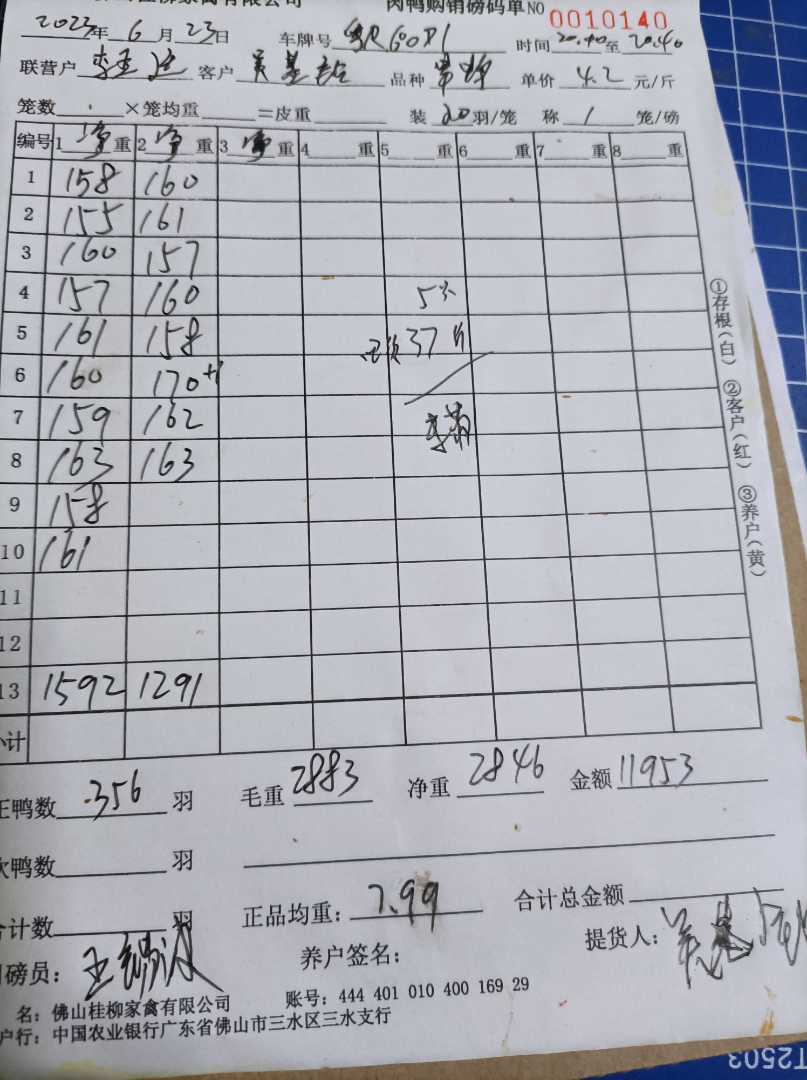 家禽有限公司 肉鸭购销磅码单NO 0010140
2023年 6 月 23日 车牌号 时间 20.10至 20.40
联营户 客户 品种 单价 4.2 元/斤
笼数 ×笼均重 =皮重 装 20 羽/笼 称 1 笼/磅
编号 1 净 重 2 净 重 3 净 重 4 重 5 重 6 重 7 重 8 重
1 158 160
2 155 161
3 160 157
4 157 160 5只
5 161 158 37斤
6 160 170+1
7 159 162
8 163 163
9 158
10 161
11
12
13 1592 1291
小计
正鸭数 356 羽 毛重 2883 净重 2846 金额 11953
次鸭数 羽
合计数 羽 正品均重: 7.99 合计总金额
司磅员: 养户签名: 提货人:
名: 佛山桂柳家禽有限公司 账号: 444 401 010 400 169 29
户行: 中国农业银行广东省佛山市三水区三水支行
①存根(白) ②客户(红) ③养户(黄)
T2503